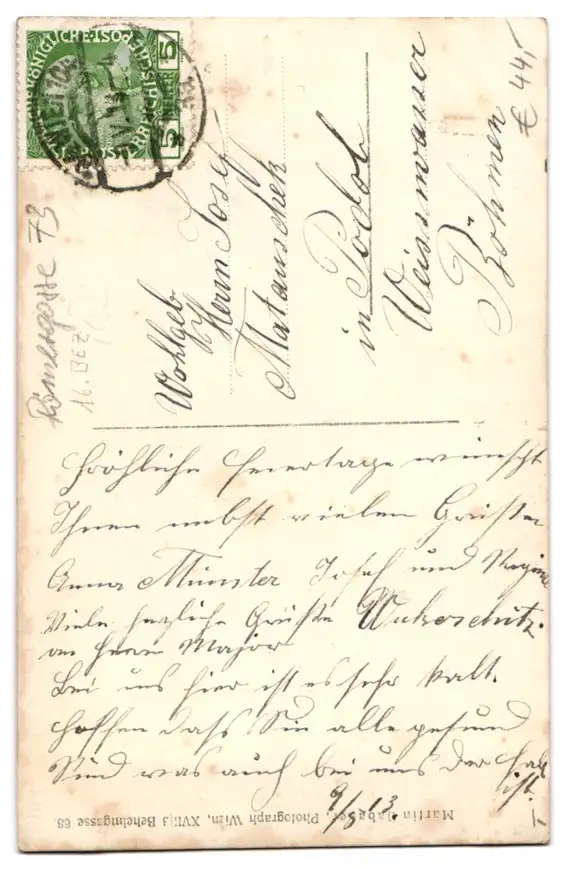 5 HELLER 5
Wohlgeb
Herrn Josef
Matauschek
in Podol
Weisswasser
Böhmen
€ 44,-
Römergasse 73
16. BEZ
Fröhliche Feiertage wünscht
Ihnen nebst vielen Grüßen
Anna Münster Josef und
Viele herzliche Grüße
an Herrn Major
Bei uns hier ist es sehr kalt.
Hoffen dass Sie alle gesund
Sind was auch bei uns der Fall
ist.
9/5 13
Martin Photograph Wien, XVII/3 Beheimgasse 68